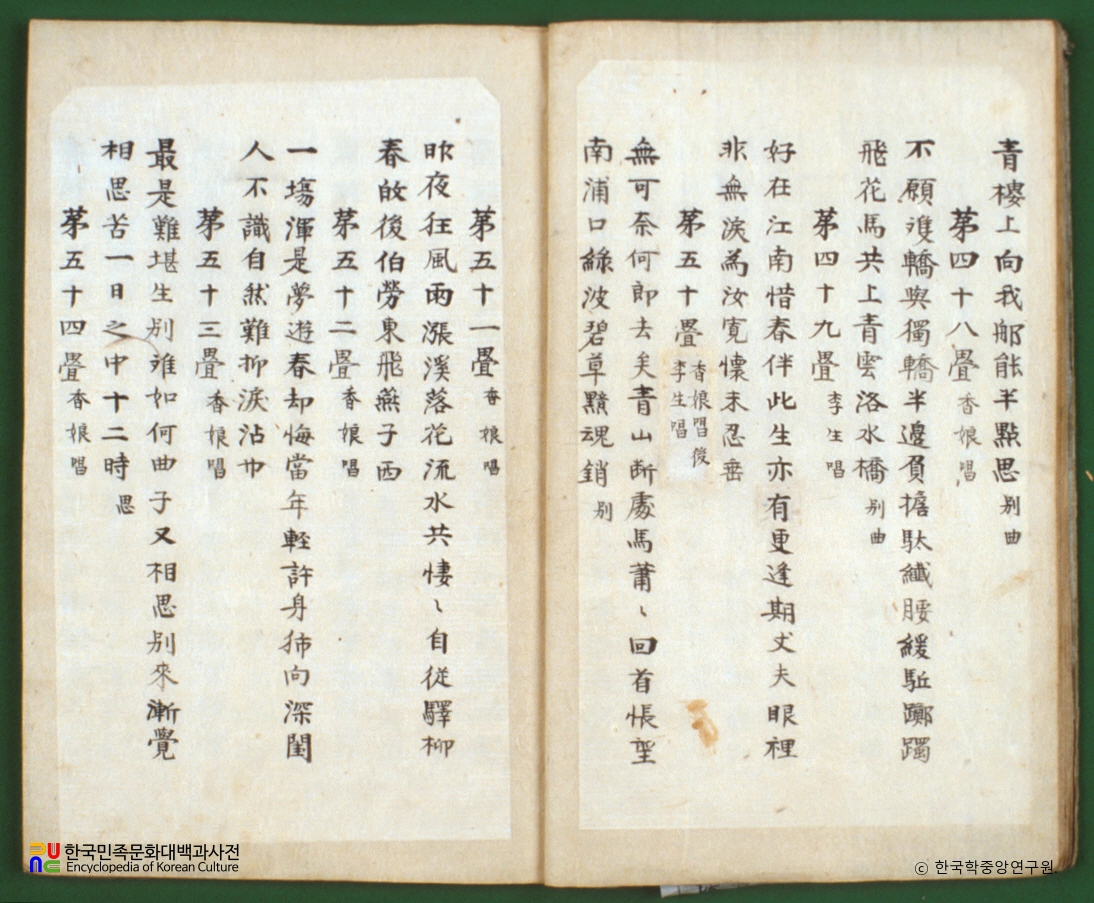 青樓上向我郍能半點思 别曲
苐四十八疊 香娘唱
不願𩀱轎與獨轎半邊負擔馱纖腰緩駈躑躅
飛花馬共上青雲洛水橋 别曲
苐四十九疊 李生唱
好在江南惜春伴此生亦有更逢期丈夫眼裡
非無淚為汝寬懷未忍垂
苐五十疊 香娘唱後 李生唱
無可奈何即去矣青山断處馬萧〻回首悵望
南浦口綠波碧草黯魂銷 别
苐五十一疊 香娘唱
昨夜狂風雨漲溪落花流水共悽〻自從驛柳
春故後伯勞東飛燕子西
苐五十二疊 香娘唱
一塲渾是夢遊春却悔當年輕許身歸向深閨
人不識自然難抑淚沾巾
苐五十三疊 香娘唱
最是難堪生别離如何曲子又相思别來漸覺
相思苦一日之中十二時 思
苐五十四疊 香娘唱
한국민족문화대백과사전
Encyclopedia of Korean Culture
© 한국학중앙연구원